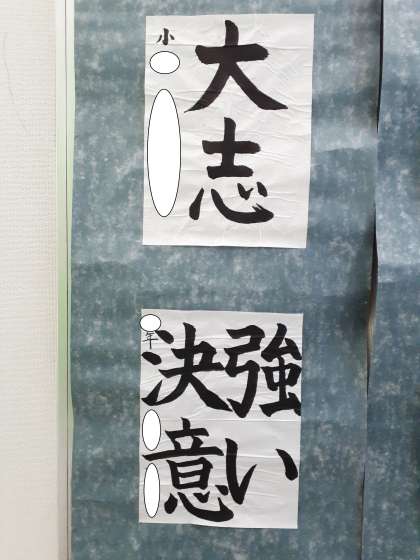 大志
小
強い
決意
年